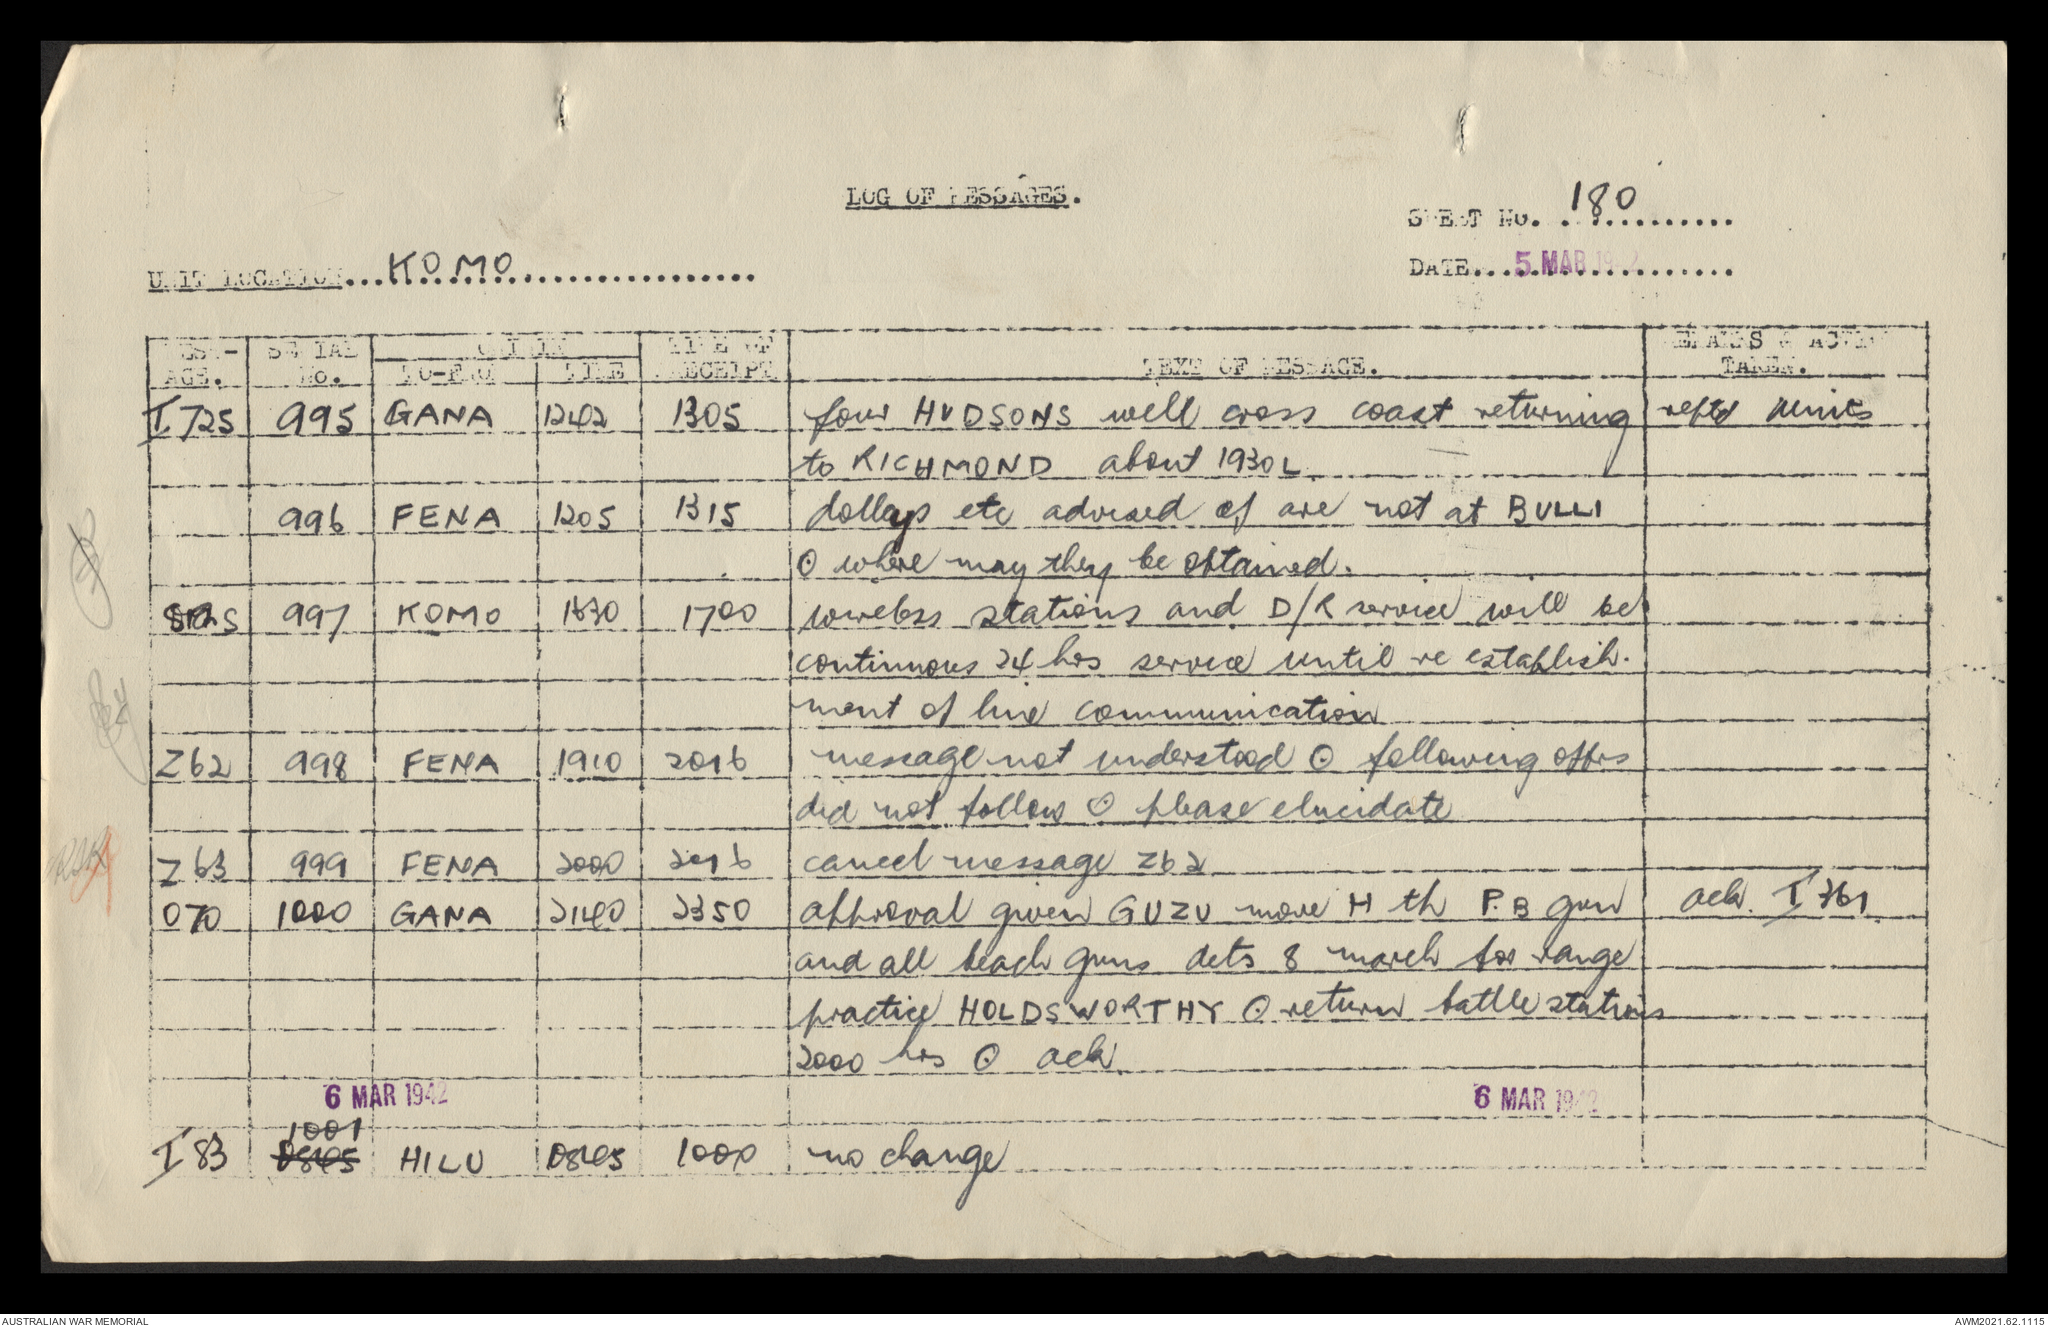 LOG OF MESSAGES.
SHEET NO. 180
UNIT LOCATION...KOMO
DATE. 5 MAR 1942
MESS- SERIAL ORIGIN TIME OF REMARKS & ACTION
AGE. No. TO-FROM TIME RECEIPT TEXT OF MESSAGE. TAKEN.
I 725 995 GANA 1242 1305 four HUDSONS well cross coast returning reptd units
to RICHMOND about 1930L
996 FENA 1205 1315 dollays etc advised of are not at BULLI
⊙ where may they be obtained.
997 KOMO 1630 1700 wireless stations and D/R service will be
continuous 24 hrs service until re establish-
ment of line communication
Z62 998 FENA 1910 2016 message not understood ⊙ following offrs
did not follow ⊙ please elucidate
Z63 999 FENA 2000 2016 cancel message Z62
070 1000 GANA 2140 2350 approval given GUZU move H th P.B gun ack. I 761.
and all beach guns dets 8 march for range
practice HOLDSWORTHY ⊙ return battle stations
2000 hrs ⊙ ack.
6 MAR 1942 6 MAR 1942
1001
I 83 0845 HILU 0845 1000 no change
AUSTRALIAN WAR MEMORIAL AWM2021.62.1115